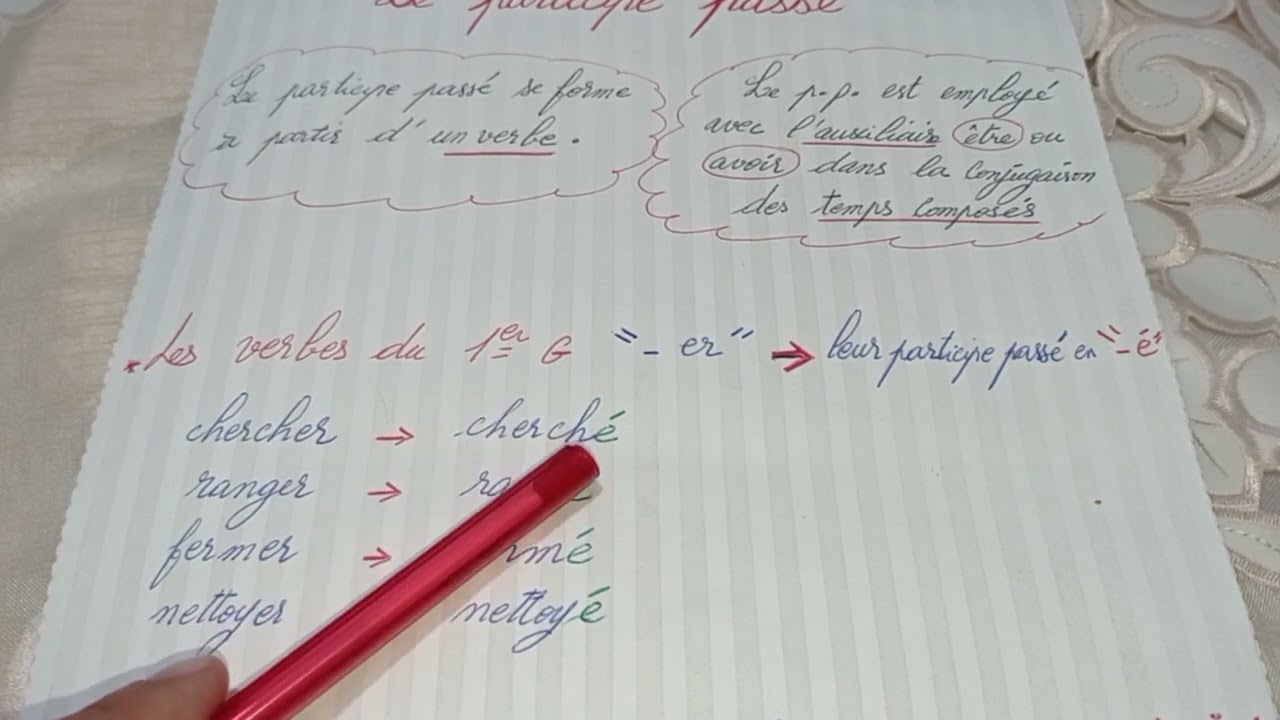 Le participe passé
Le participe passé se forme
a partir d'un verbe.
Le p.p. est employé
avec l'auxiliaire être ou
avoir dans la conjugaison
des temps composés
* Les verbes du 1er G "- er" → leur participe passé en "- é"
chercher → cherché
ranger → ra
fermer → rmé
nettoyer nettoyé